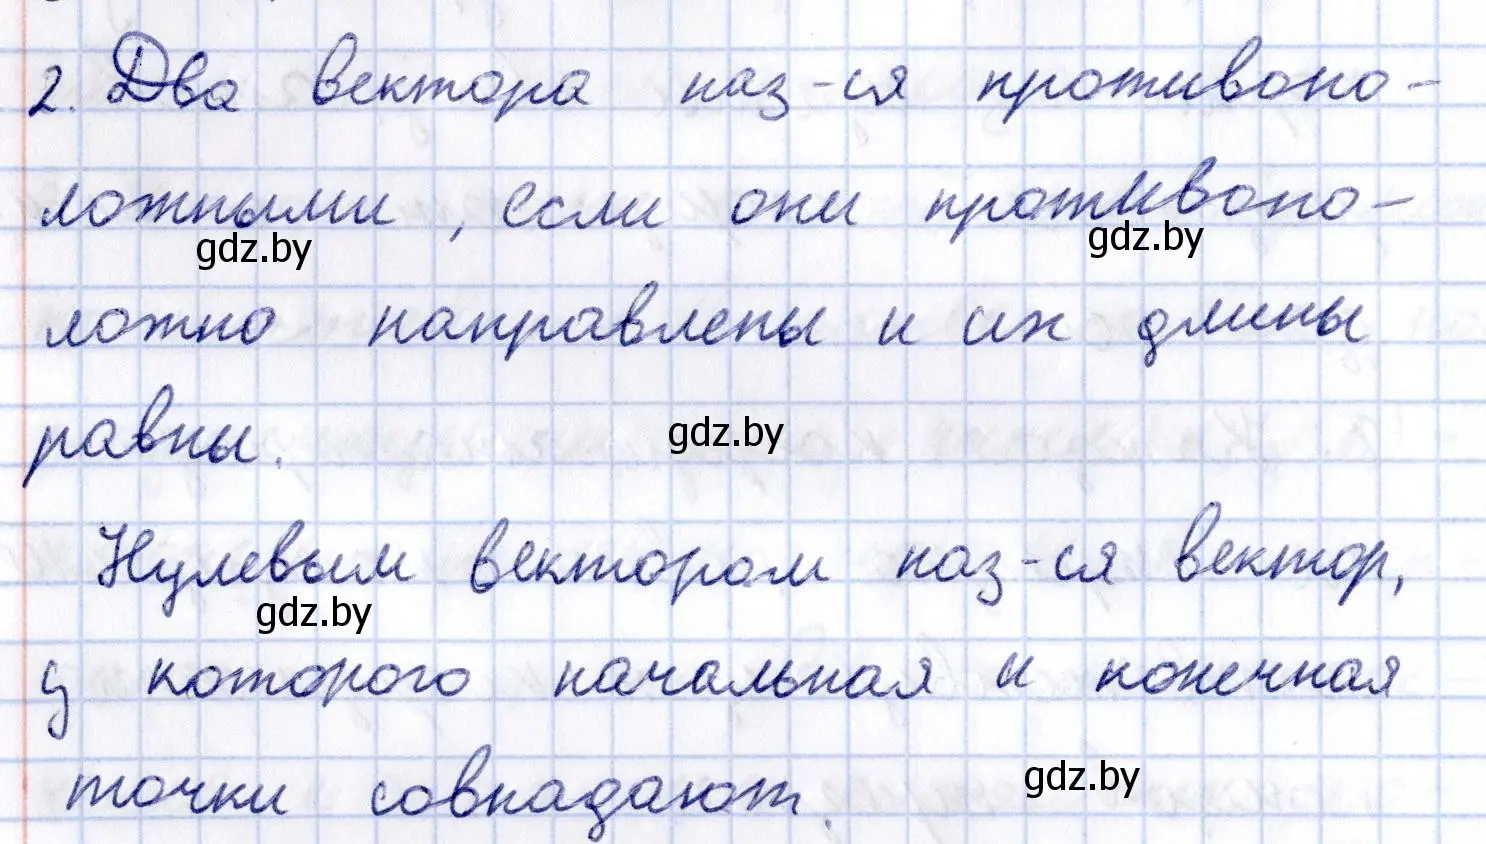 2. Два вектора наз-ся противопо-
ложными, если они противопо-
gdz.by gdz.by
ложно направлены и их длины
равны.
gdz.by
Нулевым вектором наз-ся вектор,
gdz.by
у которого начальная и конечная
точки совпадают.
gdz.by